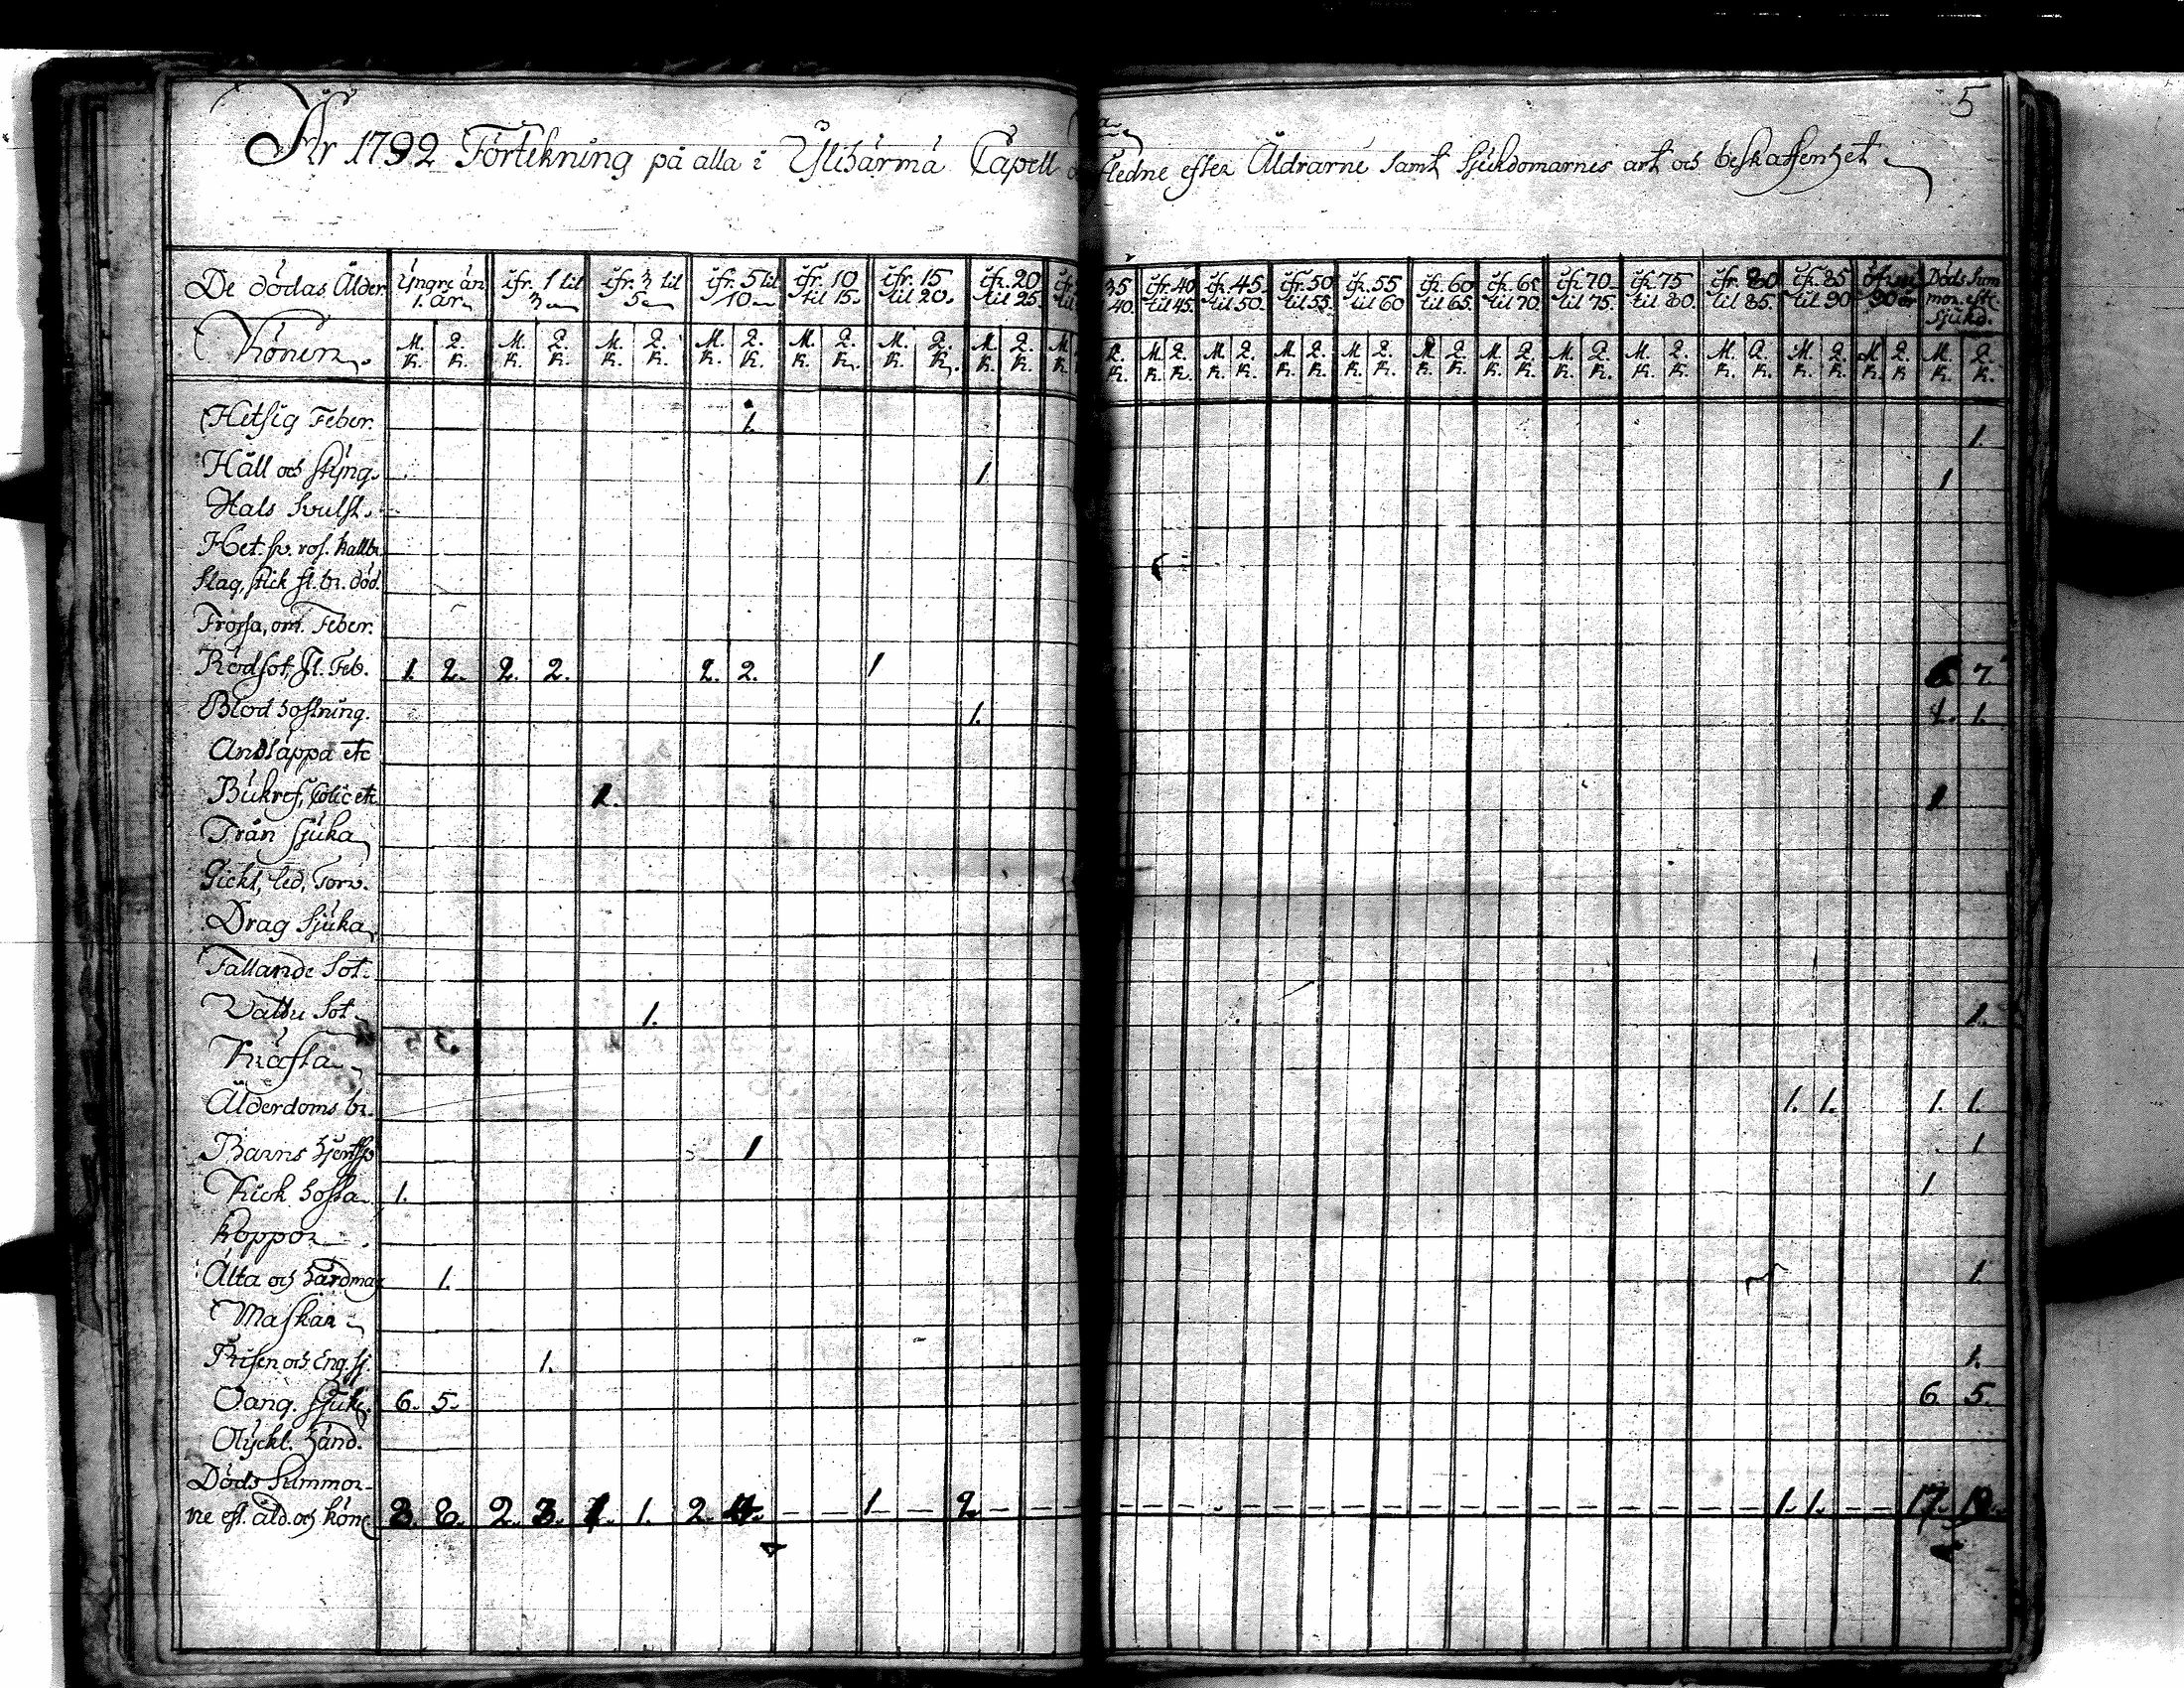 5
År 1792 Förtekning på alla i Ylihärmä Capell afledne efter Åldrarne samt sjukdomarnes art och beskaffenhet
De dödas Ålder | Yngre än 1. år | ifr. 1 til 3 | ifr. 3 til 5 | ifr. 5 til 10 | ifr. 10 til 15. | ifr. 15 til 20. | ifr. 20 til 25. | ifr. til | 35 40. | ifr. 40 til 45. | ifr. 45. til 50. | ifr. 50 til 55. | ifr. 55 til 60 | ifr. 60 til 65. | ifr. 65 til 70. | ifr. 70 til 75. | ifr. 75 til 80. | ifr. 80 til 85. | ifr. 85 til 90 | öfver 90 år | Döds Summor. eft. Sjukd.
Könen. | M. K. | Q. K. | M. K. | Q. K. | M. K. | Q. K. | M. K. | Q. K. | M. K. | Q. K. | M. K. | Q. K. | M. K. | Q. K. | M. K. | Q. K. | M. K. | Q. K. | M. K. | Q. K. | M. K. | Q. K. | M. K. | Q. K. | M. K. | Q. K. | M. K. | Q. K. | M. K. | Q. K. | M. K. | Q. K. | M. K. | Q. K. | M. K. | Q. K. | M. K. | Q. K. | M. K. | Q. K.
Hetsig Feber. 1. 1
Håll och styng. 1 1
Hals Svulst.
Het. sv. ros. kallbr.
Slag, stick fl. br. död.
Frossa, om. Feber.
Rödsot, fl. Feb. 1. 2. 2. 2. 2. 2. 1 6 7
Blod hostning. 1. 1. 1.
Andtäppa etc
Bukref, Colic etc 1. 1
Trån sjuka
Gickt, led, Torv.
Drag Sjuka
Fallande Sot.
Vattu Sot 1. 1.
Kräfta
Ålderdoms br. 1. 1. 1. 1.
Barns 1 1
Kick hosta 1. 1
Koppor
Älta och hårdmag 1. 1.
Maskar
Risen och Eng. sj. 1. 1.
Oang. sjukd. 6. 5. 6. 5.
Olyckl. händ.
Döds Summor-
ne eft. åld. och köne 8. 8. 2. 3. 1. 1. 2. 4. 1 2. 1. 1. 17. 18.